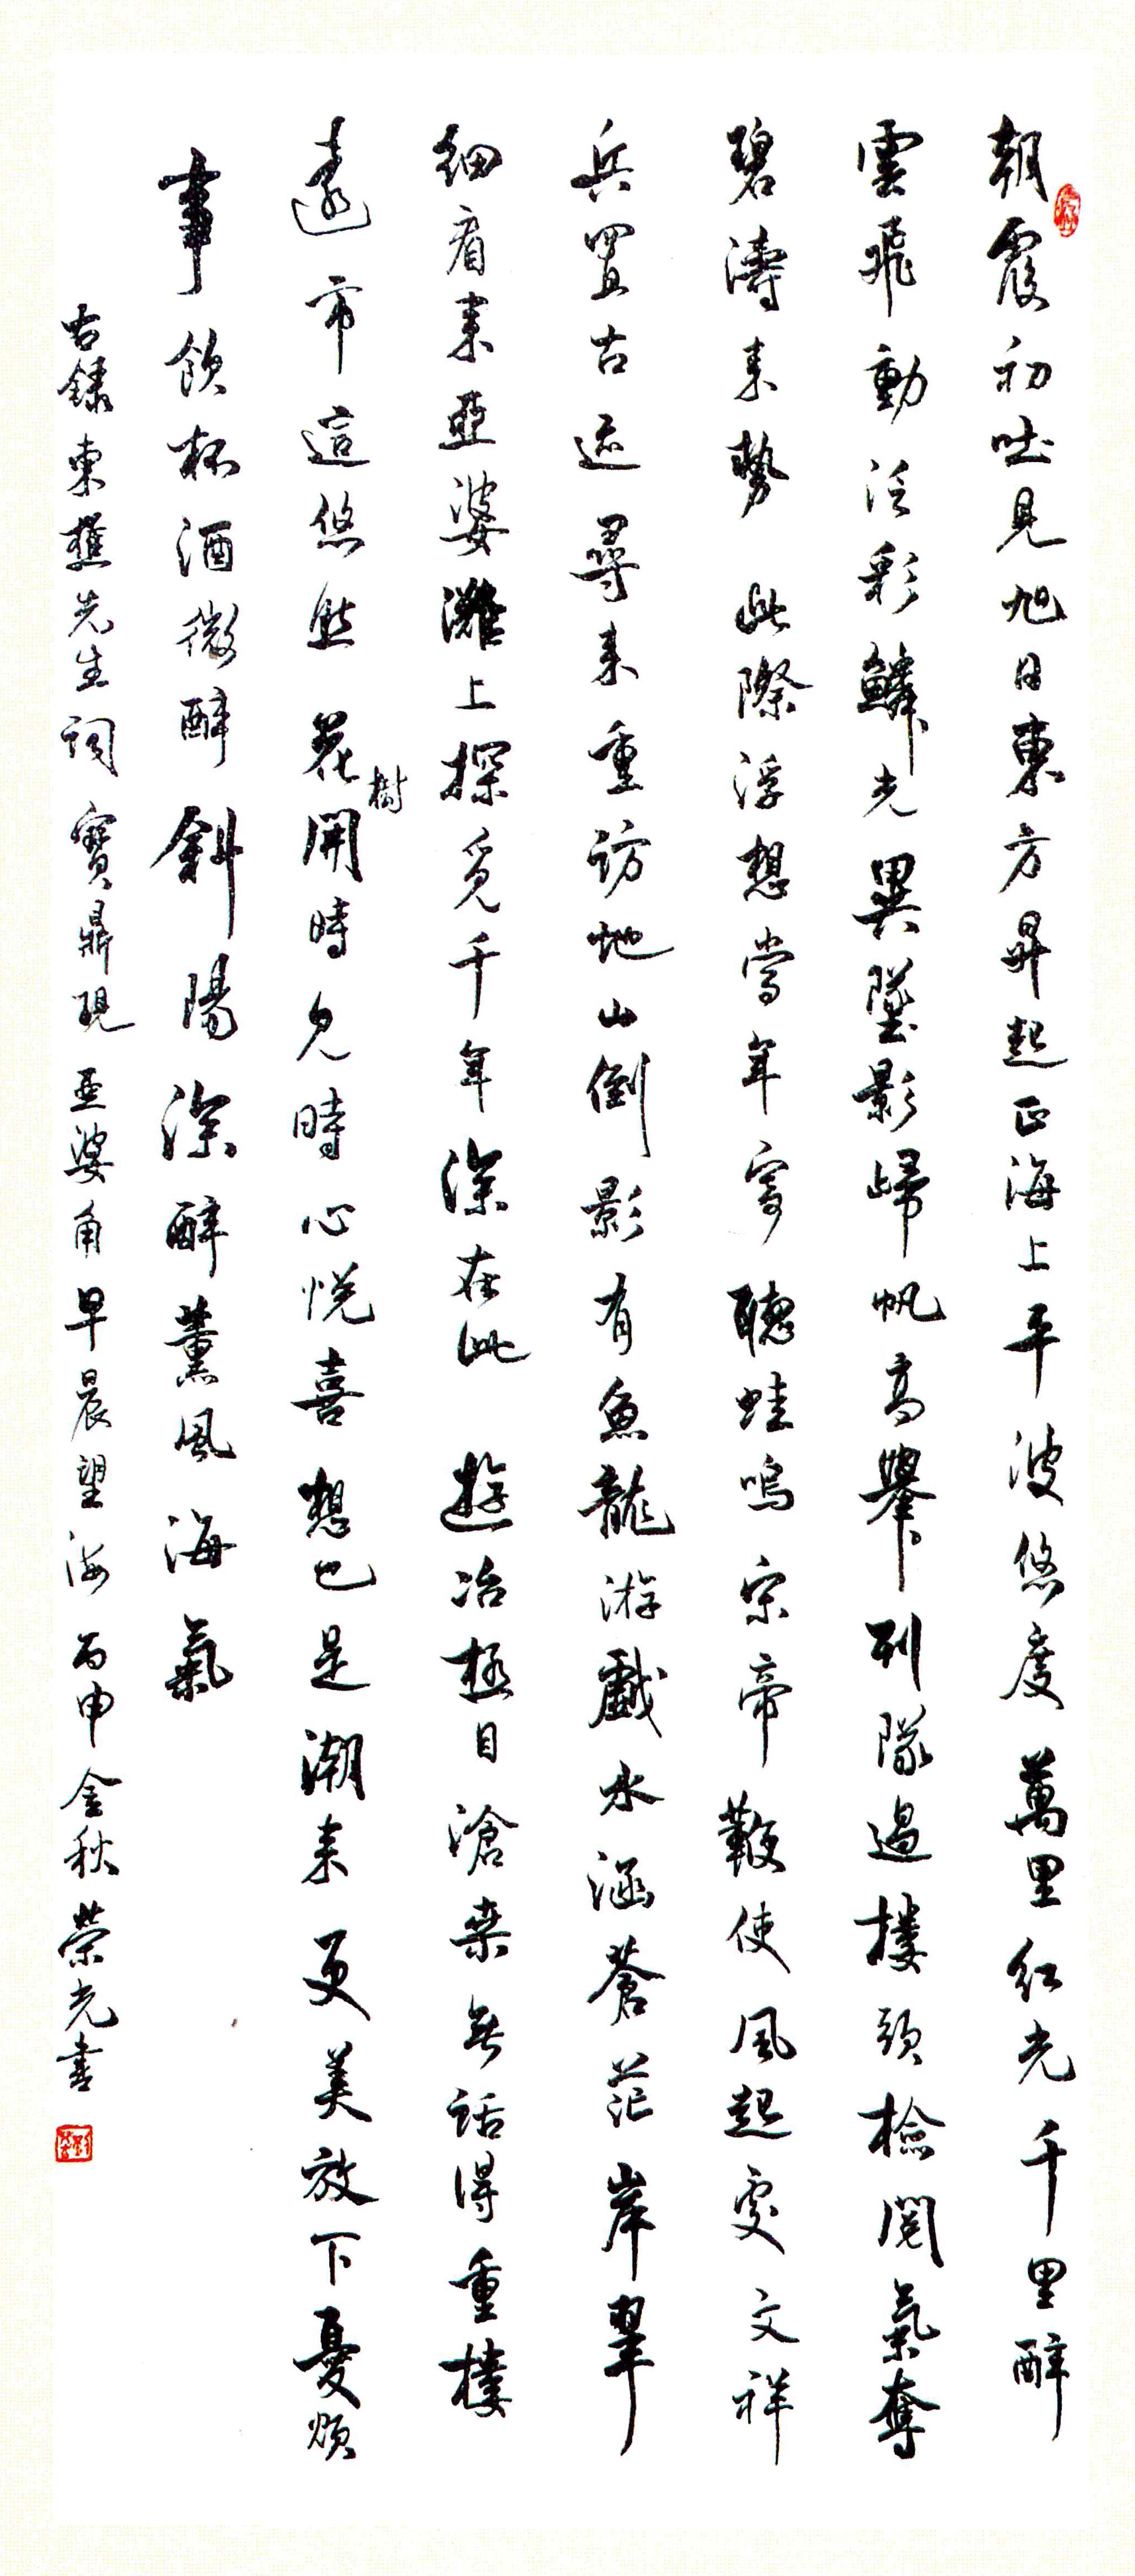 朝霞初吐見旭日東方昇起正海上平波悠度萬里紅光千里醉
雲飛動泛彩鱗光異墜影歸帆高舉列隊過樓頭檢閱氣奪
碧濤來勢此際浮想當年寄聽蛙鳴宗帝鞭使風起處文祥
兵置古迹尋來重訪地山倒影有魚龍游戲水涵蒼茫岸翠
細看來亞婆灘上探覓千年深在此遊冶極目滄桒無話得重樓
遠市這悠然花樹開時見時心悅喜想也是潮來更美放下憂煩
事飲杯酒微醉斜陽深醉薰風海氣
右錄東樵先生詞寶鼎現亞婆角早晨望海丙申金秋榮光書